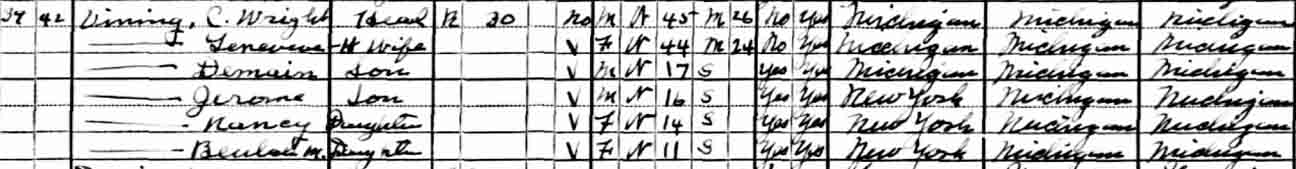 39 42 Vining, C. Wright Head R 30 No M N 45 M 26 No Yes Michigan Michigan Michigan
— Genevieve H Wife V F N 44 M 24 No Yes Michigan Michigan Michigan
— Son V M N 17 S Yes Yes Michigan Michigan Michigan
— Jerome Son V M N 16 S Yes Yes New York Michigan Michigan
— Nancy Daughter V F N 14 S Yes Yes New York Michigan Michigan
— Beulah M. Daughter V F N 11 S Yes Yes New York Michigan Michigan